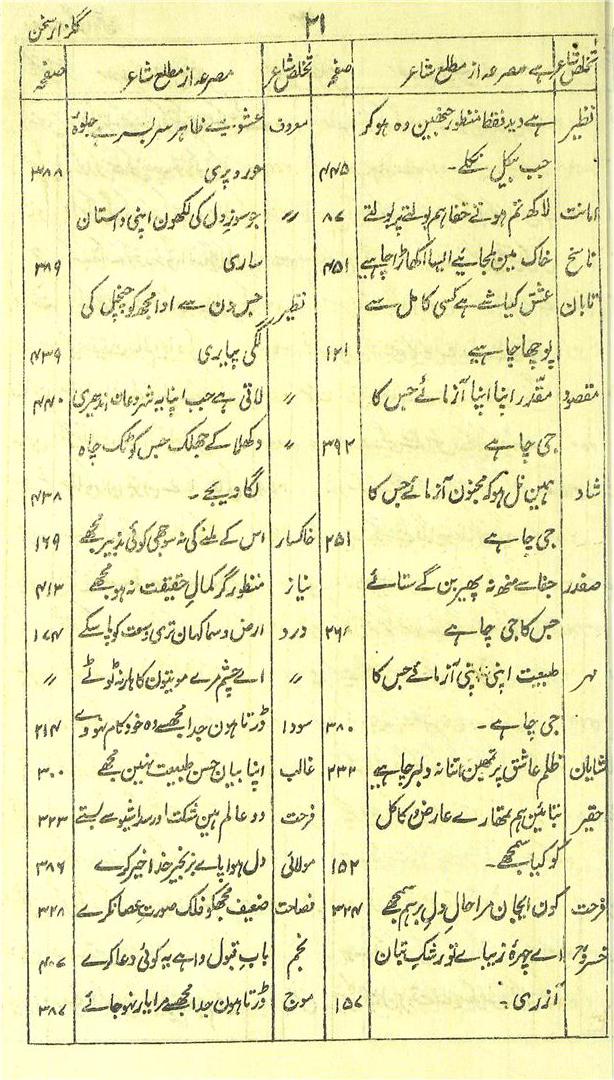 ۲۱
گلزار سخن
تخلص شاعر | مصرعہ از مطلع شاعر | صفحہ
نظیر | ہے دید فقط منظور جنھین وہ ہو کر
حب بیکل نکلے - | ۴۴۵
امانت | لاکھ تم ہوتے خفا ہم بولتے پر بولتے | ۸۶
ناسخ | خاک مین ملجائیے ایسا اکھاڑا چاہیے | ۴۵۱
تابان | عشق کیا شے ہے کسی کامل سے
پوچھا چاہیے | ۱۲۱
مقصود | مقدر اپنا اپنا آزمائے جس کا
جی چاہے | ۳۹۲
شاد | ہمین نل ہو کہ مجنون آزمائے جس کا
جی چاہے | ۲۵۱
صفدر | جفا سے منھ نہ پھیرین گے ستائے
جس کا جی چاہے | ۲۶۶
مہر | طبیعت اپنی اپنی آزمائے جس کا
جی چاہے - | ۳۸۰
شایان | ظلم عاشق پر تمھین اتنا نہ دلبر چاہیے | ۲۳۲
حقیر | بتائین ہم تمھارے عارض و کاکل
کو کیا سمجھے - | ۱۵۲
فرحت | کون ایجان مرا حال دل برہم سمجھے | ۳۲۴
خسرو | اے چہرۂ زیباے تو رشک بتان
آزری - | ۱۵۷
تخلص شاعر | مصرعہ از مطلع شاعر | صفحہ
معروف | عشق سے ظاہر سر بسر ہے جلوۂ
حور و پری | ۳۸۸
〃 | جو سوز دل کی لکھون اپنی داستان
ساری | ۳۸۹
نظیر | جس دن سے ادا مجھ کو چنچل کی
لگی پیاری | ۴۳۹
〃 | لاتی ہے حب اپنا یہ شر و عات اندھیری | ۴۴۰
〃 | دکھلا کے جھلک جس کو ٹک چاہ
لگا دیجے - | ۴۳۸
خاکسار | اس کے ملنے کی نہ سوجھی کوئی تدبیر مجھے | ۱۶۹
نیاز | منظور گر کمال حقیقت نہ ہو مجھے | ۴۱۳
درد | ارض و سما کہان تری وسعت کو پا سکے | ۱۷۴
〃 | اے چشم مرے موتیون کا ہار نہ ٹوٹے | 〃
سودا | ڈرتا ہون جدا مجھسے وہ خود کام نہووے | ۲۱۴
غالب | اپنا بیان حسن طبیعت نہین مجھے | ۳۰۰
فرحت | دو عالم ہین شکتا اور سداشیو سے بستے | ۳۲۳
مولائی | دل ہوا پاے بزنجیر خدا خیر کرے | ۳۸۶
فصاحت | ضعیف مجھکو فلک صورت عصا نکرے | ۳۲۸
نجم | باب قبول وا ہے یہ کوئی دعا کرے | ۴۰۷
موج | ڈرتا ہون جدا مجھسے مرا یار نہو جائے | ۳۸۷